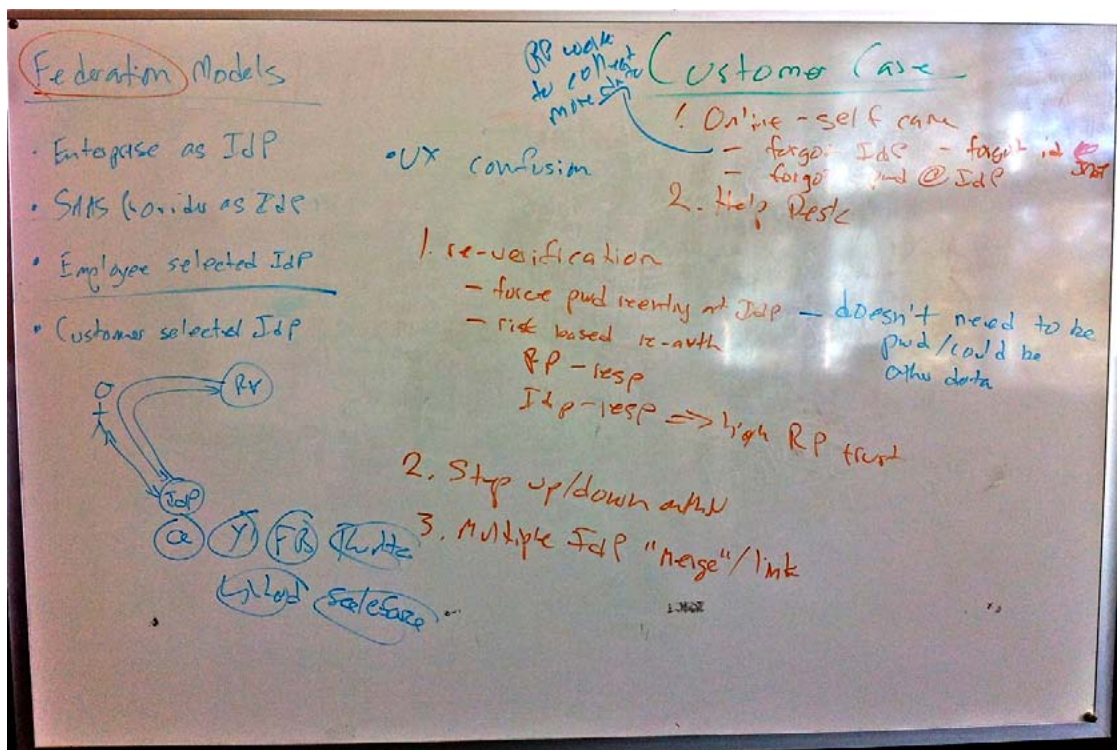 Federation Models
· Enterprise as IdP
· SAAS Provider as IdP
· Employee selected IdP
· Customer selected IdP
RP
IdP
Y!
FB
Twitter
LinkedIn
Salesforce
· UX confusion
RP
to collect
more
Customer Care
1. Online - self care
- forgot IdP - forgot id @
- forgot pwd @ IdP
2. Help Desk
1. re-verification
- force pwd reentry at IdP - doesn't need to be
pwd/could be
other data
- risk based re-auth
RP - resp
Idp - resp => high RP trust
2. Step up/down authN
3. Multiple IdP "merge"/link